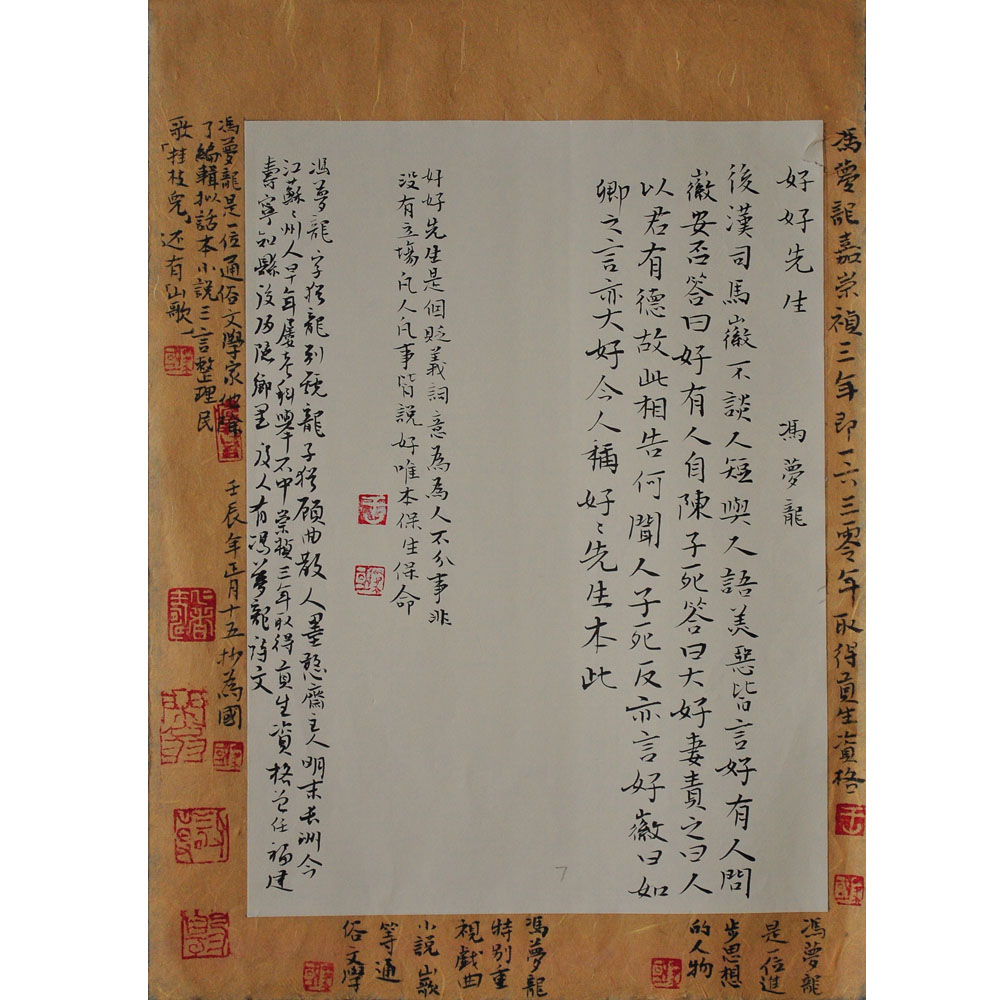 馮夢龍嘉崇禎三年即一六三零年取得貢生資格
好好先生 馮夢龍
後漢司馬徽不談人短與人語美惡皆言好有人問
徽安否答曰好有人自陳子死答曰大好妻責之曰人
以君有德故此相告何聞人子死反亦言好徽曰如
卿之言亦大好今人稱好〻先生本此
好好先生是個貶義詞意為為人不分事非
沒有立場凡人凡事皆說好唯本保生保命
馮夢龍字猶龍別號龍子猶顧曲散人墨憨齋主人明末長洲今
江蘇〻州人早年屢考科舉不中崇禎三年取得貢生資格曾任福建
壽寧知縣後歸隱鄉里後人有馮夢龍詩文
馮夢龍是一位通俗文學家他除
了編輯拟話本小説三言整理民
歌「挂枝兒」还有「山歌」
壬辰年正月十五抄為國
馮夢龍
是一位進
步思想
的人物
馮夢龍
特别重
視戲曲
小說山歌
等通
俗文學